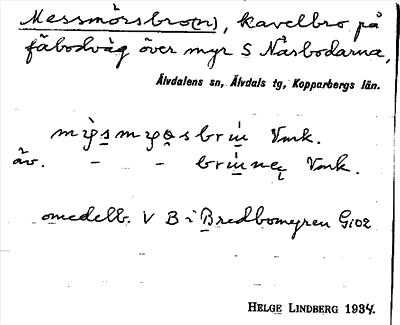 Messmörsbro(n), kavelbro på
fäbodväg över myr S Näsbodarna,
Älvdalens sn, Älvdals tg, Kopparbergs län.
brin Vmk.
äv. - - Vmk.
omedelb. V B i Bredbomyren G102
HELGE LINDBERG 1934.